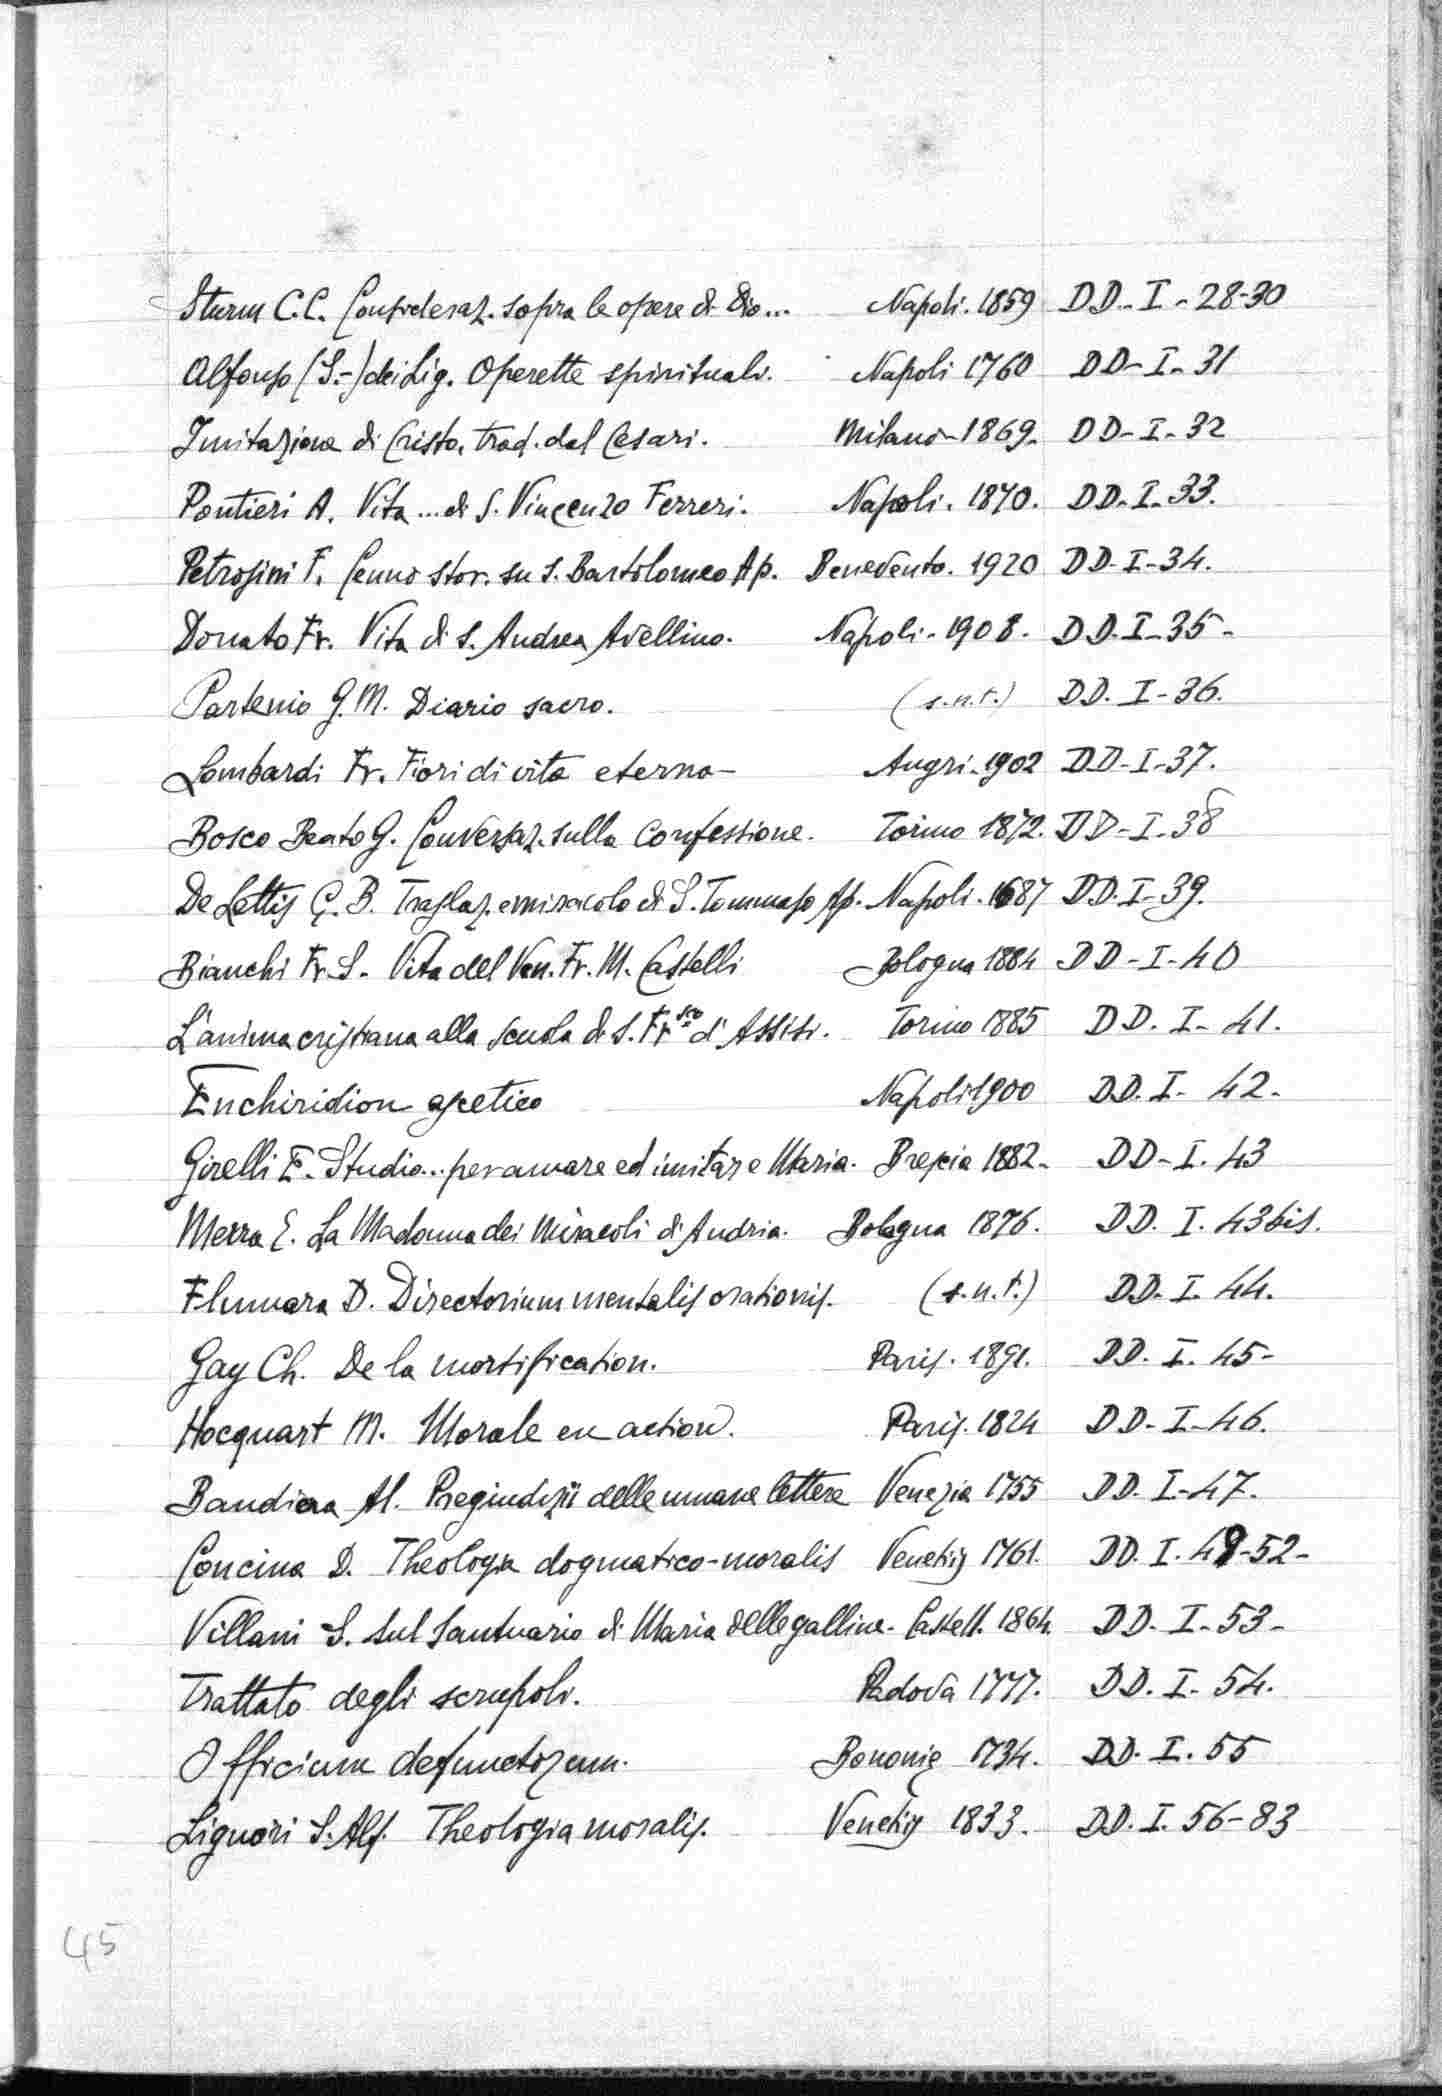 Sturm C.C. Consideraz. sopra le opere di Dio... Napoli. 1859 DD-I-28-30
Alfonso (S.-) dei Lig. Operette spirituali. Napoli 1760 DD-I-31
Imitazione di Cristo, trad. dal Cesari. Milano-1869- DD-I-32
Pontieri A. Vita ... di S. Vincenzo Ferreri. Napoli. 1870. DD-I-33.
Petrosini F. Cenno stor. su S. Bartolomeo Ap. Benevento. 1920 DD-I-34.
Donato Fr. Vita di S. Andrea Avellino. Napoli-1908. DD.I-35-
Partenio G.M. Diario sacro. (s.n.t.) DD. I-36.
Lombardi Fr. Fiori di vita eterna- Angri-1902 DD-I-37.
Bosco Beato G. Conversaz. sulla confessione. Torino 1872. DD-I-38
De Lettis G.B. Traslaz. e miracolo di S. Tommaso Ap. Napoli. 1687 DD.I-39.
Bianchi Fr. S. Vita del Ven. Fr. M. Castelli Bologna 1884 DD-I-40
L'anima cristiana alla scuola di S. Fr.sco d'Assisi. Torino 1885 DD. I-41.
Enchiridion ascetico Napoli 1900 DD. I-42-
Girelli E. Studio... per amare ed imitare Maria. Brescia 1882- DD-I. 43
Merra E. La Madonna dei Miracoli di Andria. Bologna 1876. DD. I. 43bis.
D. Directorium mentalis orationis. (s.n.t.) DD. I. 44.
Gay Ch. De la mortification. Paris. 1891. DD. I. 45-
Hocquart M. Morale en action. Paris. 1824 DD-I-46.
Bandiera Al. Pregiudizii delle umane lettere Venezia 1755 DD. I-47.
Concina D. Theologia dogmatico-moralis Venetiis 1761. DD. I. 49-52-
Villani S. Sul Santuario di Maria delle galline. Castell. 1864. DD. I-53-
Trattato degli scrupoli. Padova 1777. DD. I-54.
Officium defunctorum. Bononię 1734. DD. I. 55
Liguori S. Alf. Theologia moralis. Venetiis 1833. DD. I. 56-83
45